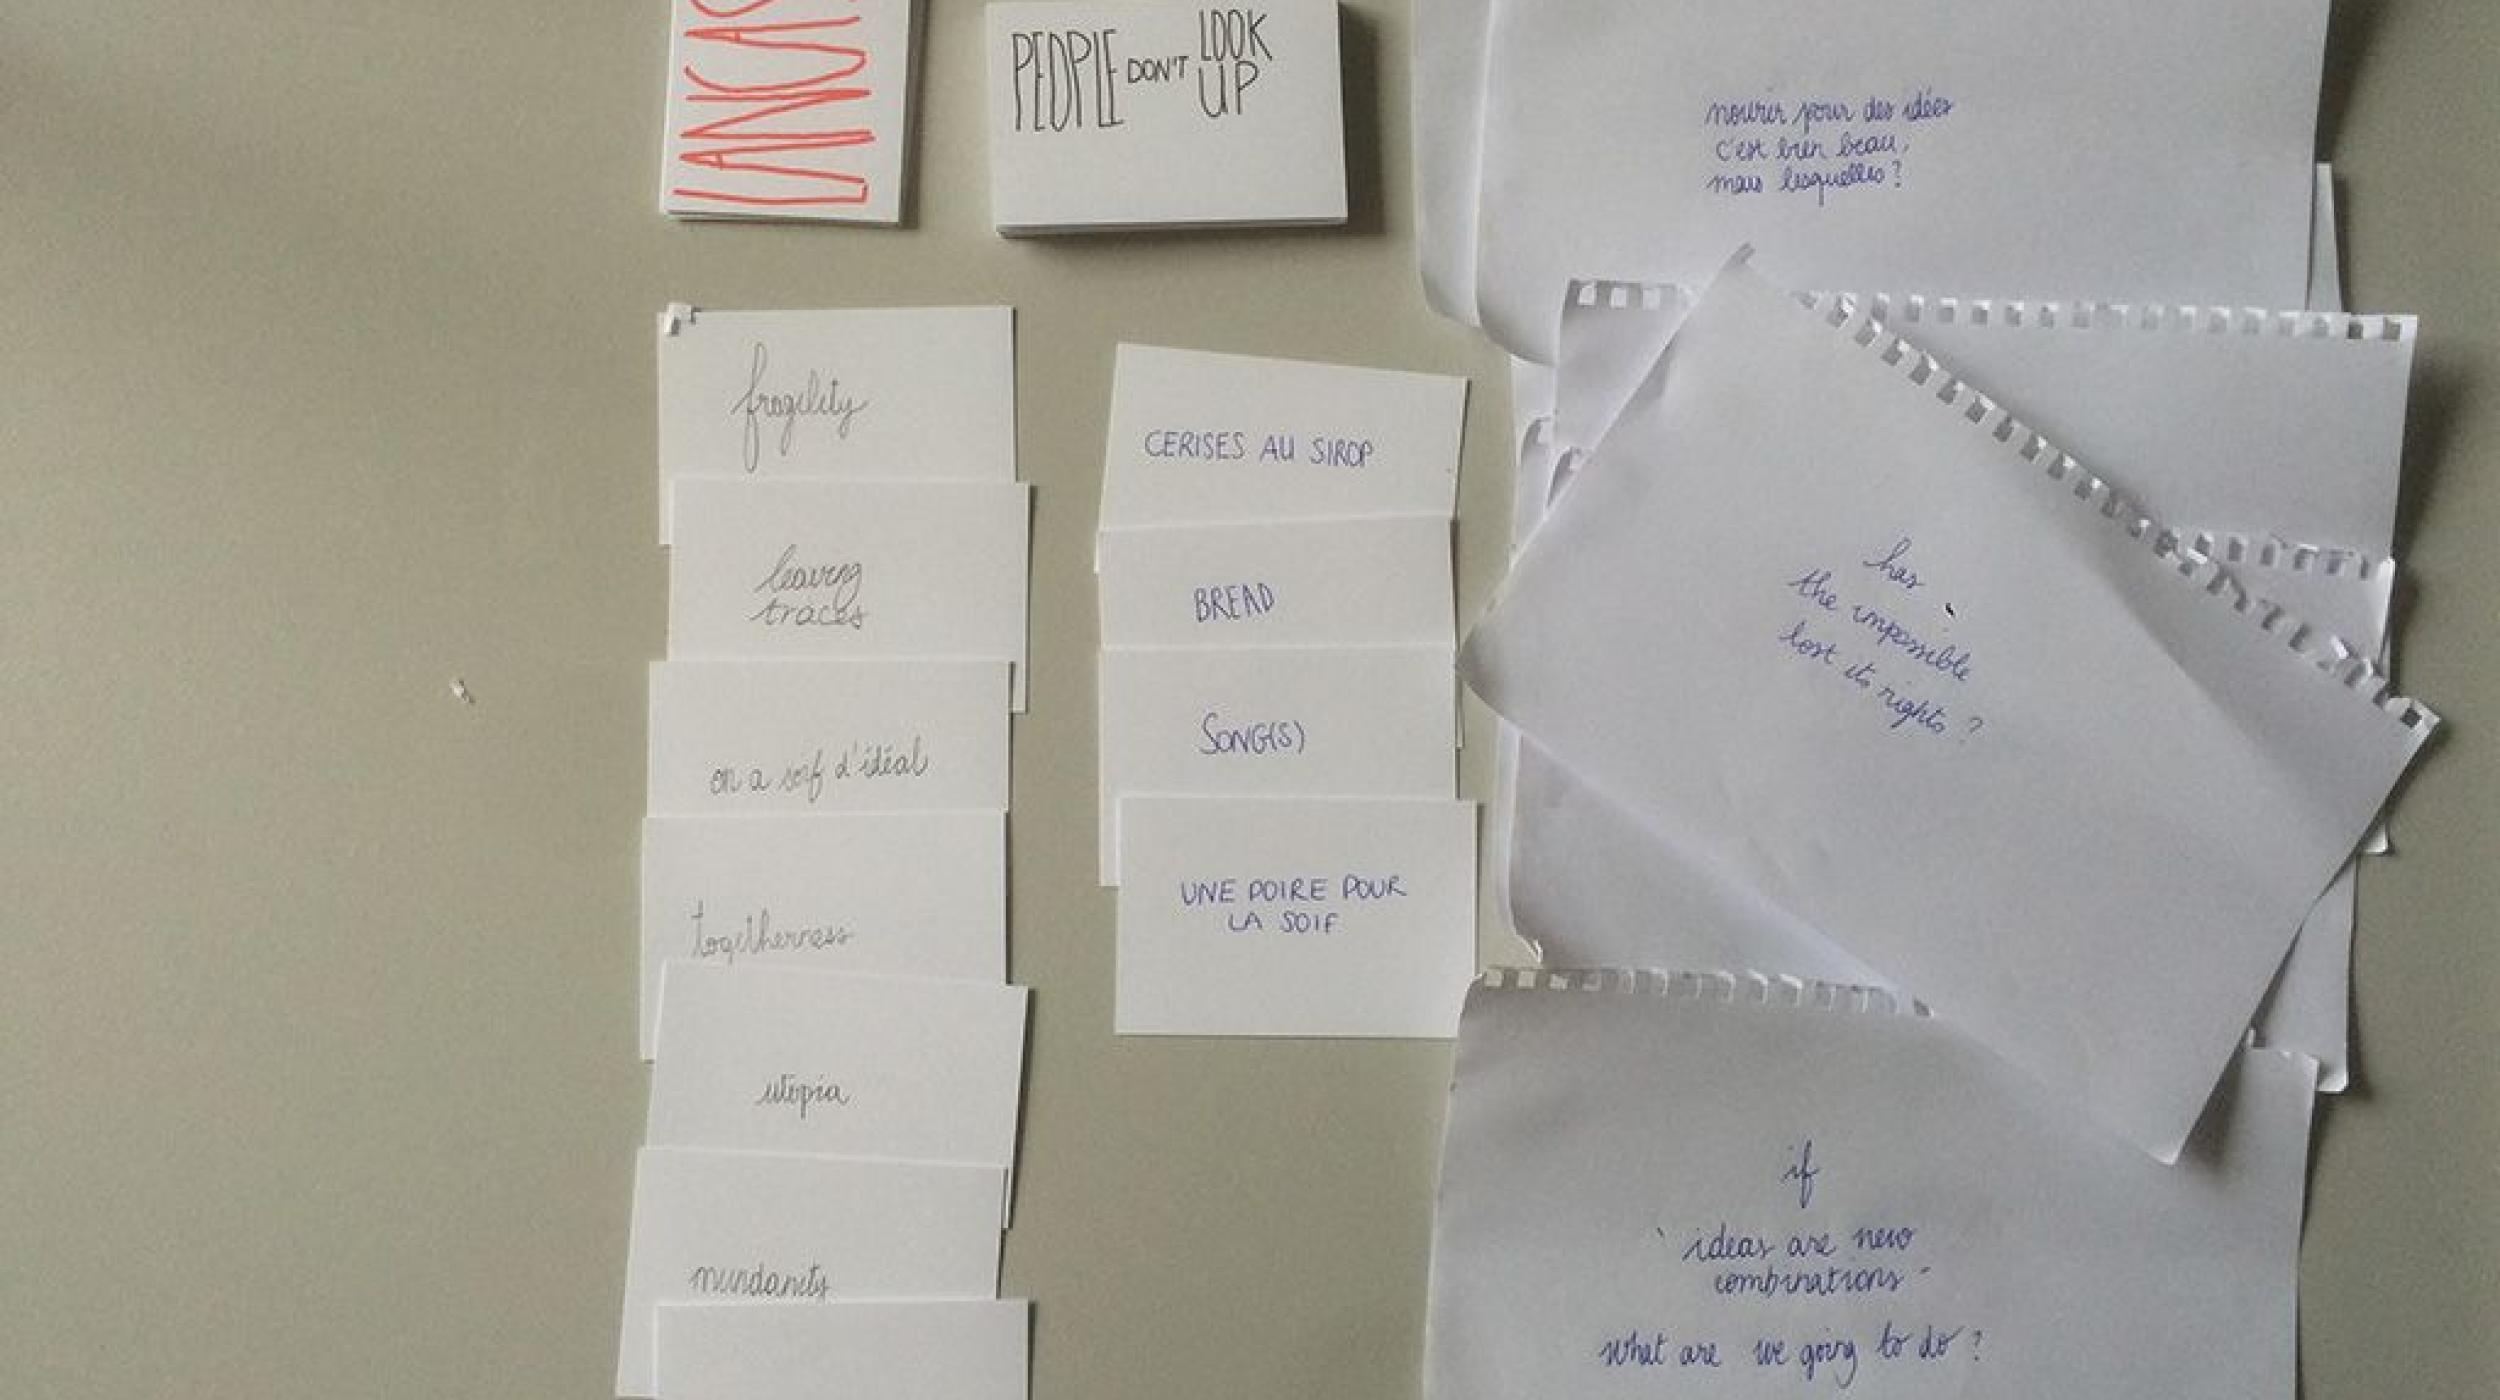 LANCAS
PEOPLE DON'T LOOK
UP
fragility
leaving
traces
on a soif d'idéal
togetherness
utopia
mundanity
CERISES AU SIROP
BREAD
SONG(S)
UNE POIRE POUR
LA SOIF
mourir pour des idées
c'est bien beau,
mais lesquelles?
has
the impossible
lost its rights ?
if
ideas are new
combinations
what are we going to do ?